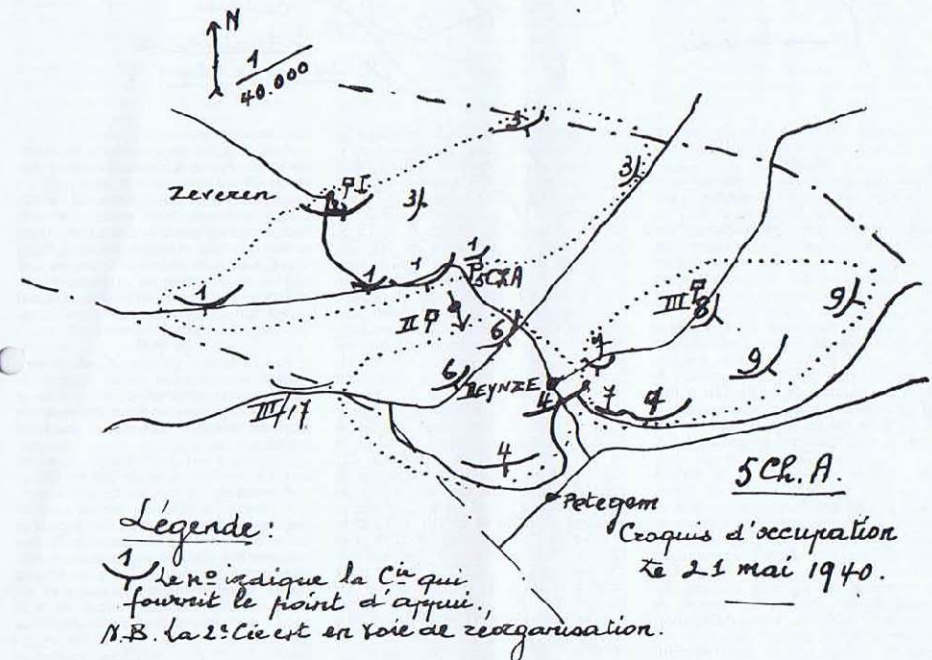 N
1
40.000
3
3
Zeveren
I
3
1
1
1
1
5ChA
II
6
III
8
9
9
6
DEYNZE
4
7
7
III/17
4
Petegem
5Ch.A.
Croquis d'occupation
Le 21 mai 1940.
Légende:
1
Le nº indique la Cie qui
fournit le point d'appui.
N.B. La 2e Cie est en voie de réorganisation.